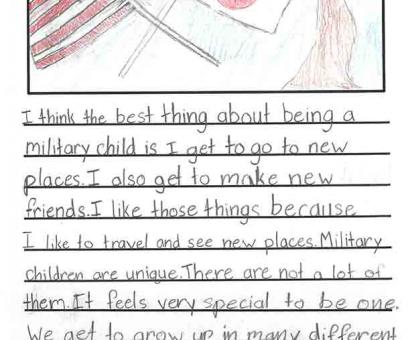 I think the best thing about being a
military child is I get to go to new
places. I also get to make new
friends. I like those things because
I like to travel and see new places. Military
children are unique. There are not a lot of
them. It feels very special to be one.
We get to grow up in many different